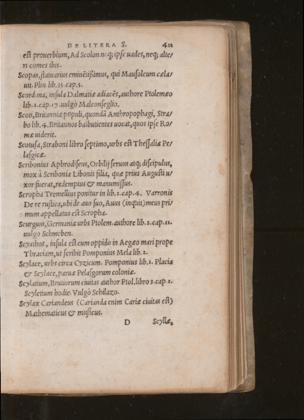 DE LITERA S. 411
est prouerbium, Ad Scolon neq; ipse uades, neq; alte-
ri comes ibis.
Scopas, statuarius eminẽtissimus, qui Mausoleum cæla-
uit. Plin lib.35.cap.5.
Scordona, insula Dalmatiæ adiacẽs, authore Ptolemæo
lib.2.cap.17. uulgò Malconseglio.
Scoti, Britanniæ populi, quondã Anthropophagi, Stra-
bo lib.4. Britannos baibutientes uocat, quos ipse Ro-
mæ uiderit.
Scotusa, Straboni libro septimo, urbs est Thessaliæ Pe-
lasgicæ.
Scribonius Aphrodiseus, Orbilij seruus atq; discipulus,
mox à Scribonia Libonis filia, quæ prius Augusti u-
xor fuerat, redemptus & manumissus.
Scropha Tremellius ponitur in lib.1.cap.4. Varronis
De re rustica, ubi de auo suo, Auus (inquit) meus pri-
mum appellatus est Scropha.
Scurgum, Germaniæ urbs Ptolem. authore lib.2.cap.11.
uulgo Schiueben.
Scyathus, insula est cum oppido in Aegæo mari prope
Thraciam, ut scribit Pomponius Mela lib.2.
Scylace, urbs circa Cyzicum. Pomponius lib.1. Placia
& Scylace, paruæ Pelasgorum coloniæ.
Scylatium, Brutiorum ciuitas author Ptol. libro 3.cap.1.
Scyletium hodie Vulgò Schilazo.
Scylax Cariandeus (Carianda enim Cariæ ciuitas est)
Mathematicus & musicus.
D Scyllæ,